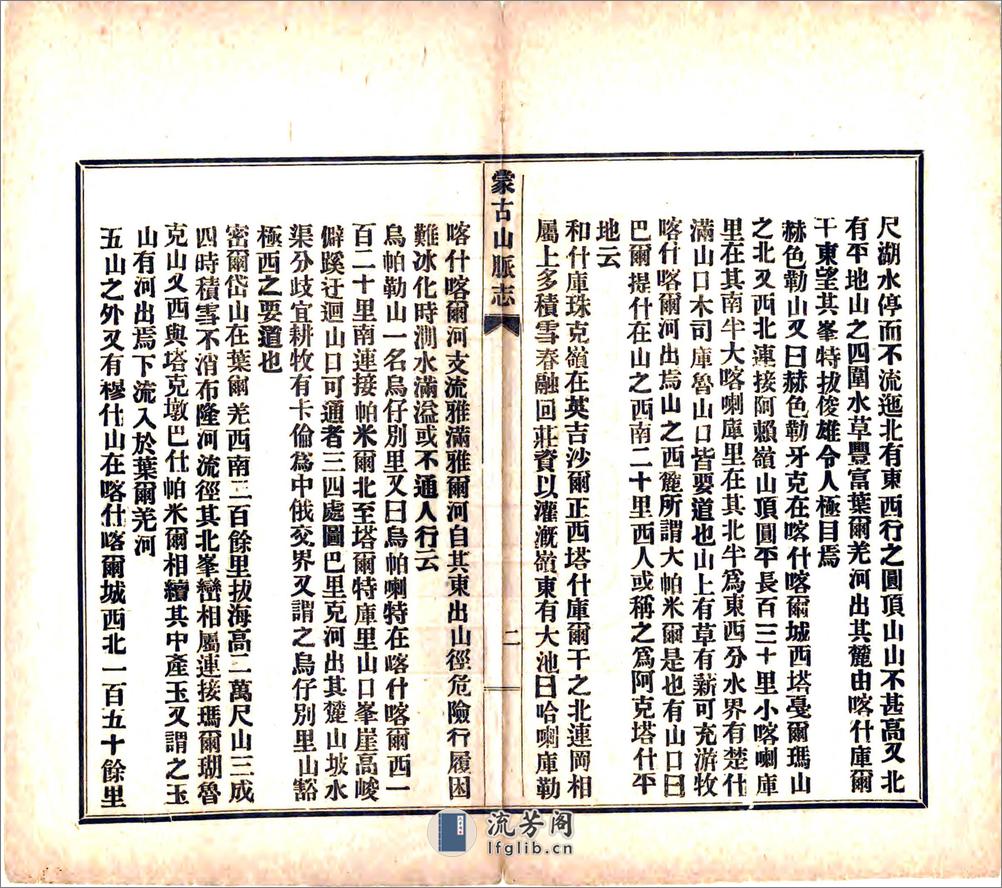 尺湖水停而不流迤北有東西行之圓頂山山不甚高又北
有平地山之四圍水草豐富葉爾羌河出其麓由喀什庫爾
干東望其峯特拔俊雄令人極目焉
赫色勒山又曰赫色勒牙克在喀什喀爾城西塔戞爾瑪山
之北又西北連接阿賴嶺山頂圓平長百三十里小喀喇庫
里在其南半大喀喇庫里在其北半爲東西分水界有楚什
滿山口木司庫魯山口皆要道也山上有草有薪可充游牧
喀什喀爾河出焉山之西麓所謂大帕米爾是也有山口曰
巴爾提什在山之西南二十里西人或稱之爲阿克塔什平
地云
和什庫珠克嶺在英吉沙爾正西塔什庫爾干之北連岡相
屬上多積雪春融回莊資以灌漑嶺東有大池曰哈喇庫勒
蒙古山脈志
二
喀什喀爾河支流雅滿雅爾河自其東出山徑危險行履困
難冰化時澗水滿溢或不通人行云
烏帕勒山一名烏仔別里又曰烏帕喇特在喀什喀爾西一
百二十里南連接帕米爾北至塔爾特庫里山口峯崖高峻
僻蹊迂迴山口可通者三四處圖巴里克河出其麓山坡水
渠分歧宜耕牧有卡倫爲中俄交界又謂之烏仔別里山豁
極西之要道也
密爾岱山在葉爾羌西南二百餘里拔海高二萬尺山三成
四時積雪不消布隆河流徑其北峯巒相屬連接瑪爾瑚魯
克山又西與塔克墩巴仕帕米爾相續其中產玉又謂之玉
山有河出焉下流入於葉爾羌河
五山之外又有穆什山在喀什喀爾城西北一百五十餘里
流芳阁
lfglib.cn